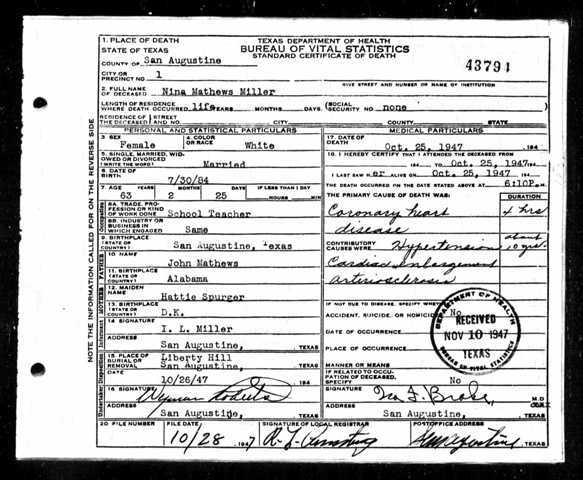 1. PLACE OF DEATH
STATE OF TEXAS
TEXAS DEPARTMENT OF HEALTH
BUREAU OF VITAL STATISTICS
STANDARD CERTIFICATE OF DEATH
43791
COUNTY OF San Augustine
CITY OR
PRECINCT NO. 1
GIVE STREET AND NUMBER OR NAME OF INSTITUTION
2. FULL NAME
OF DECEASED Nina Mathews Miller
LENGTH OF RESIDENCE
WHERE DEATH OCCURRED life YEARS MONTHS DAYS (SOCIAL
SECURITY NO. none
RESIDENCE OF STREET
THE DECEASED AND NO. CITY COUNTY STATE
PERSONAL AND STATISTICAL PARTICULARS
3 SEX
Female
4. COLOR
OR RACE White
5. SINGLE, MARRIED, WID-
OWED OR DIVORCED
(WRITE THE WORD) Married
6. DATE OF
BIRTH 7/30/84
7. AGE YEARS MONTHS DAYS IF LESS THAN 1 DAY
63 2 25 HOURS MIN
8A. TRADE, PRO-
FESSION OR KIND
OF WORK DONE School Teacher
8B. INDUSTRY OR
BUSINESS IN
WHICH ENGAGED Same
9. BIRTHPLACE
(STATE OR
COUNTRY) San Augustine, Texas
FATHER
10 NAME
John Mathews
11. BIRTHPLACE
(STATE OR
COUNTRY) Alabama
MOTHER
12. MAIDEN
NAME Hattie Spurger
13. BIRTHPLACE
(STATE OR
COUNTRY) D.K.
14 SIGNATURE
I. L. Miller
ADDRESS
San Augustine, TEXAS
15. PLACE OF
BURIAL OR
REMOVAL Liberty Hill
San Augustine, TEXAS
DATE
10/26/47 194
16 SIGNATURE
Wyman Roberts
ADDRESS
San Augustine, TEXAS
MEDICAL PARTICULARS
17. DATE OF
DEATH Oct. 25, 1947 194
18. I HEREBY CERTIFY THAT I ATTENDED THE DECEASED FROM
194 TO Oct. 25, 1947 194
I LAST SAW H er ALIVE ON Oct. 25, 1947 194
THE DEATH OCCURRED ON THE DATE STATED ABOVE AT 6:10P.M.
THE PRIMARY CAUSE OF DEATH WAS: DURATION
Coronary heart 4 hrs
disease
CONTRIBUTORY
CAUSES WERE: Hypertension about
10 yrs.
Cardiac enlargement
arteriosclerosis
IF NOT DUE TO DISEASE, SPECIFY WHETHER
ACCIDENT, SUICIDE, OR HOMICIDE No
DATE OF OCCURRENCE
PLACE OF OCCURRENCE
MANNER OR MEANS
IF RELATED TO OCCU-
PATION OF DECEASED,
SPECIFY No
SIGNATURE
M.D
ADDRESS
San Augustine, TEXAS
DEPARTMENT OF HEALTH
RECEIVED
NOV 10 1947
TEXAS
BUREAU OF VITAL STATISTICS
20 FILE NUMBER
FILE DATE
10/28 1947
SIGNATURE OF LOCAL REGISTRAR
POSTOFFICE ADDRESS
San Augustine, TEXAS
NOTE THE INFORMATION CALLED FOR ON THE REVERSE SIDE